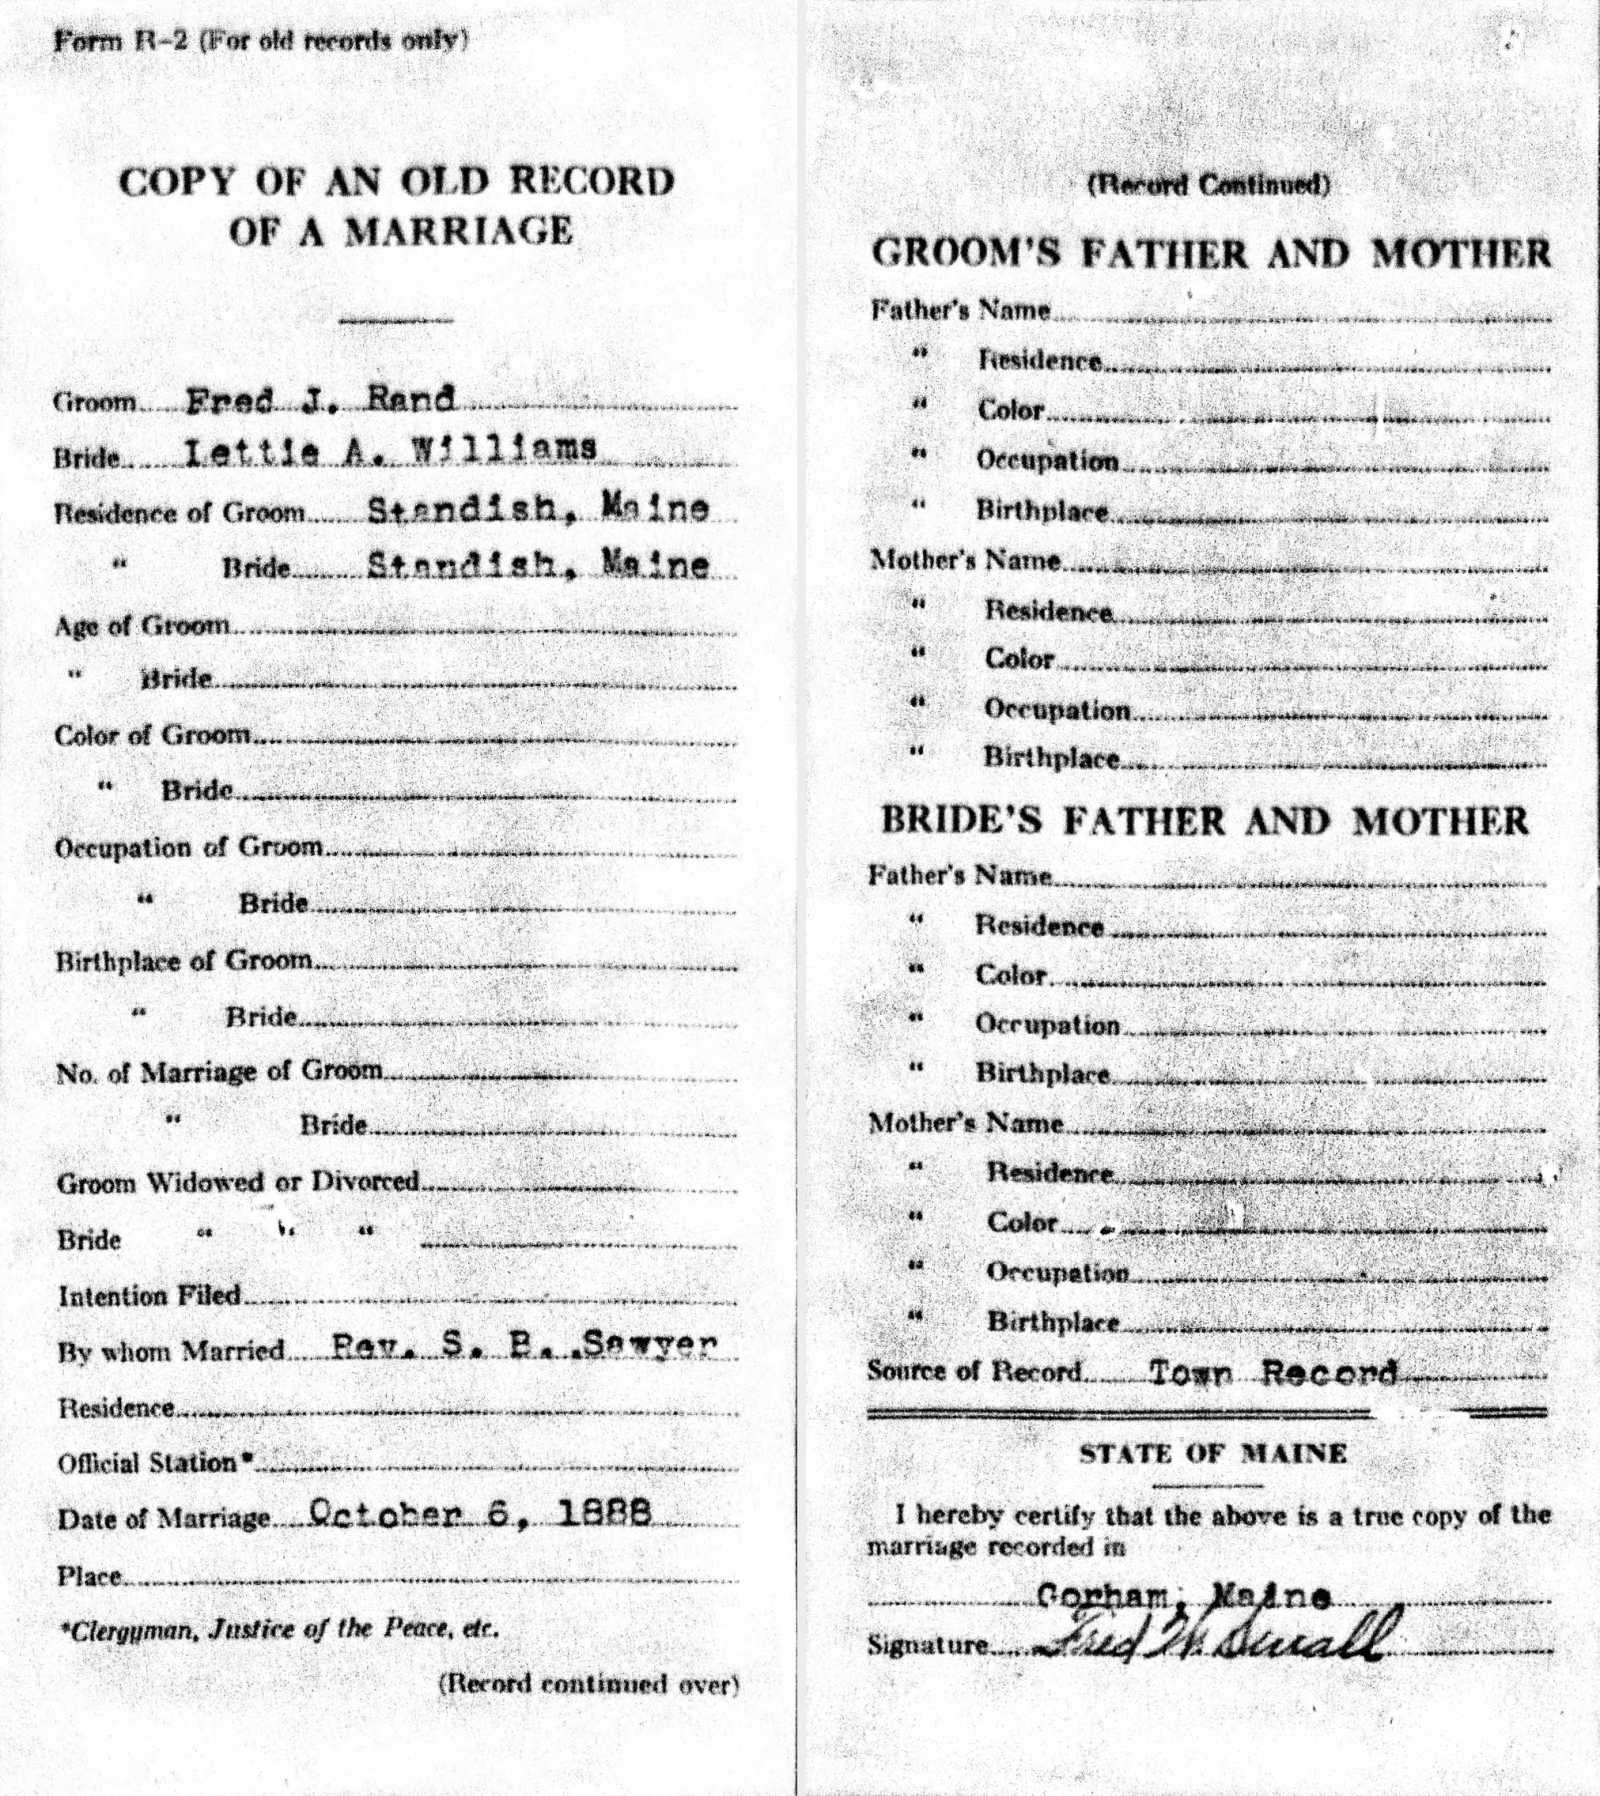 Form R-2 (For old records only)
COPY OF AN OLD RECORD
OF A MARRIAGE
Groom Fred J. Rand
Bride Lettie A. Williams
Residence of Groom Standish, Maine
" Bride Standish, Maine
Age of Groom
" Bride
Color of Groom
" Bride
Occupation of Groom
" Bride
Birthplace of Groom
" Bride
No. of Marriage of Groom
" Bride
Groom Widowed or Divorced
Bride " " "
Intention Filed
By whom Married Rev. S. B. Sawyer
Residence
Official Station*
Date of Marriage October 6, 1888
Place
*Clergyman, Justice of the Peace, etc.
(Record continued over)
(Record Continued)
GROOM'S FATHER AND MOTHER
Father's Name
" Residence
" Color
" Occupation
" Birthplace
Mother's Name
" Residence
" Color
" Occupation
" Birthplace
BRIDE'S FATHER AND MOTHER
Father's Name
" Residence
" Color
" Occupation
" Birthplace
Mother's Name
" Residence
" Color
" Occupation
" Birthplace
Source of Record Town Record
STATE OF MAINE
I hereby certify that the above is a true copy of the
marriage recorded in
Gorham, Maine
Signature Fred W.